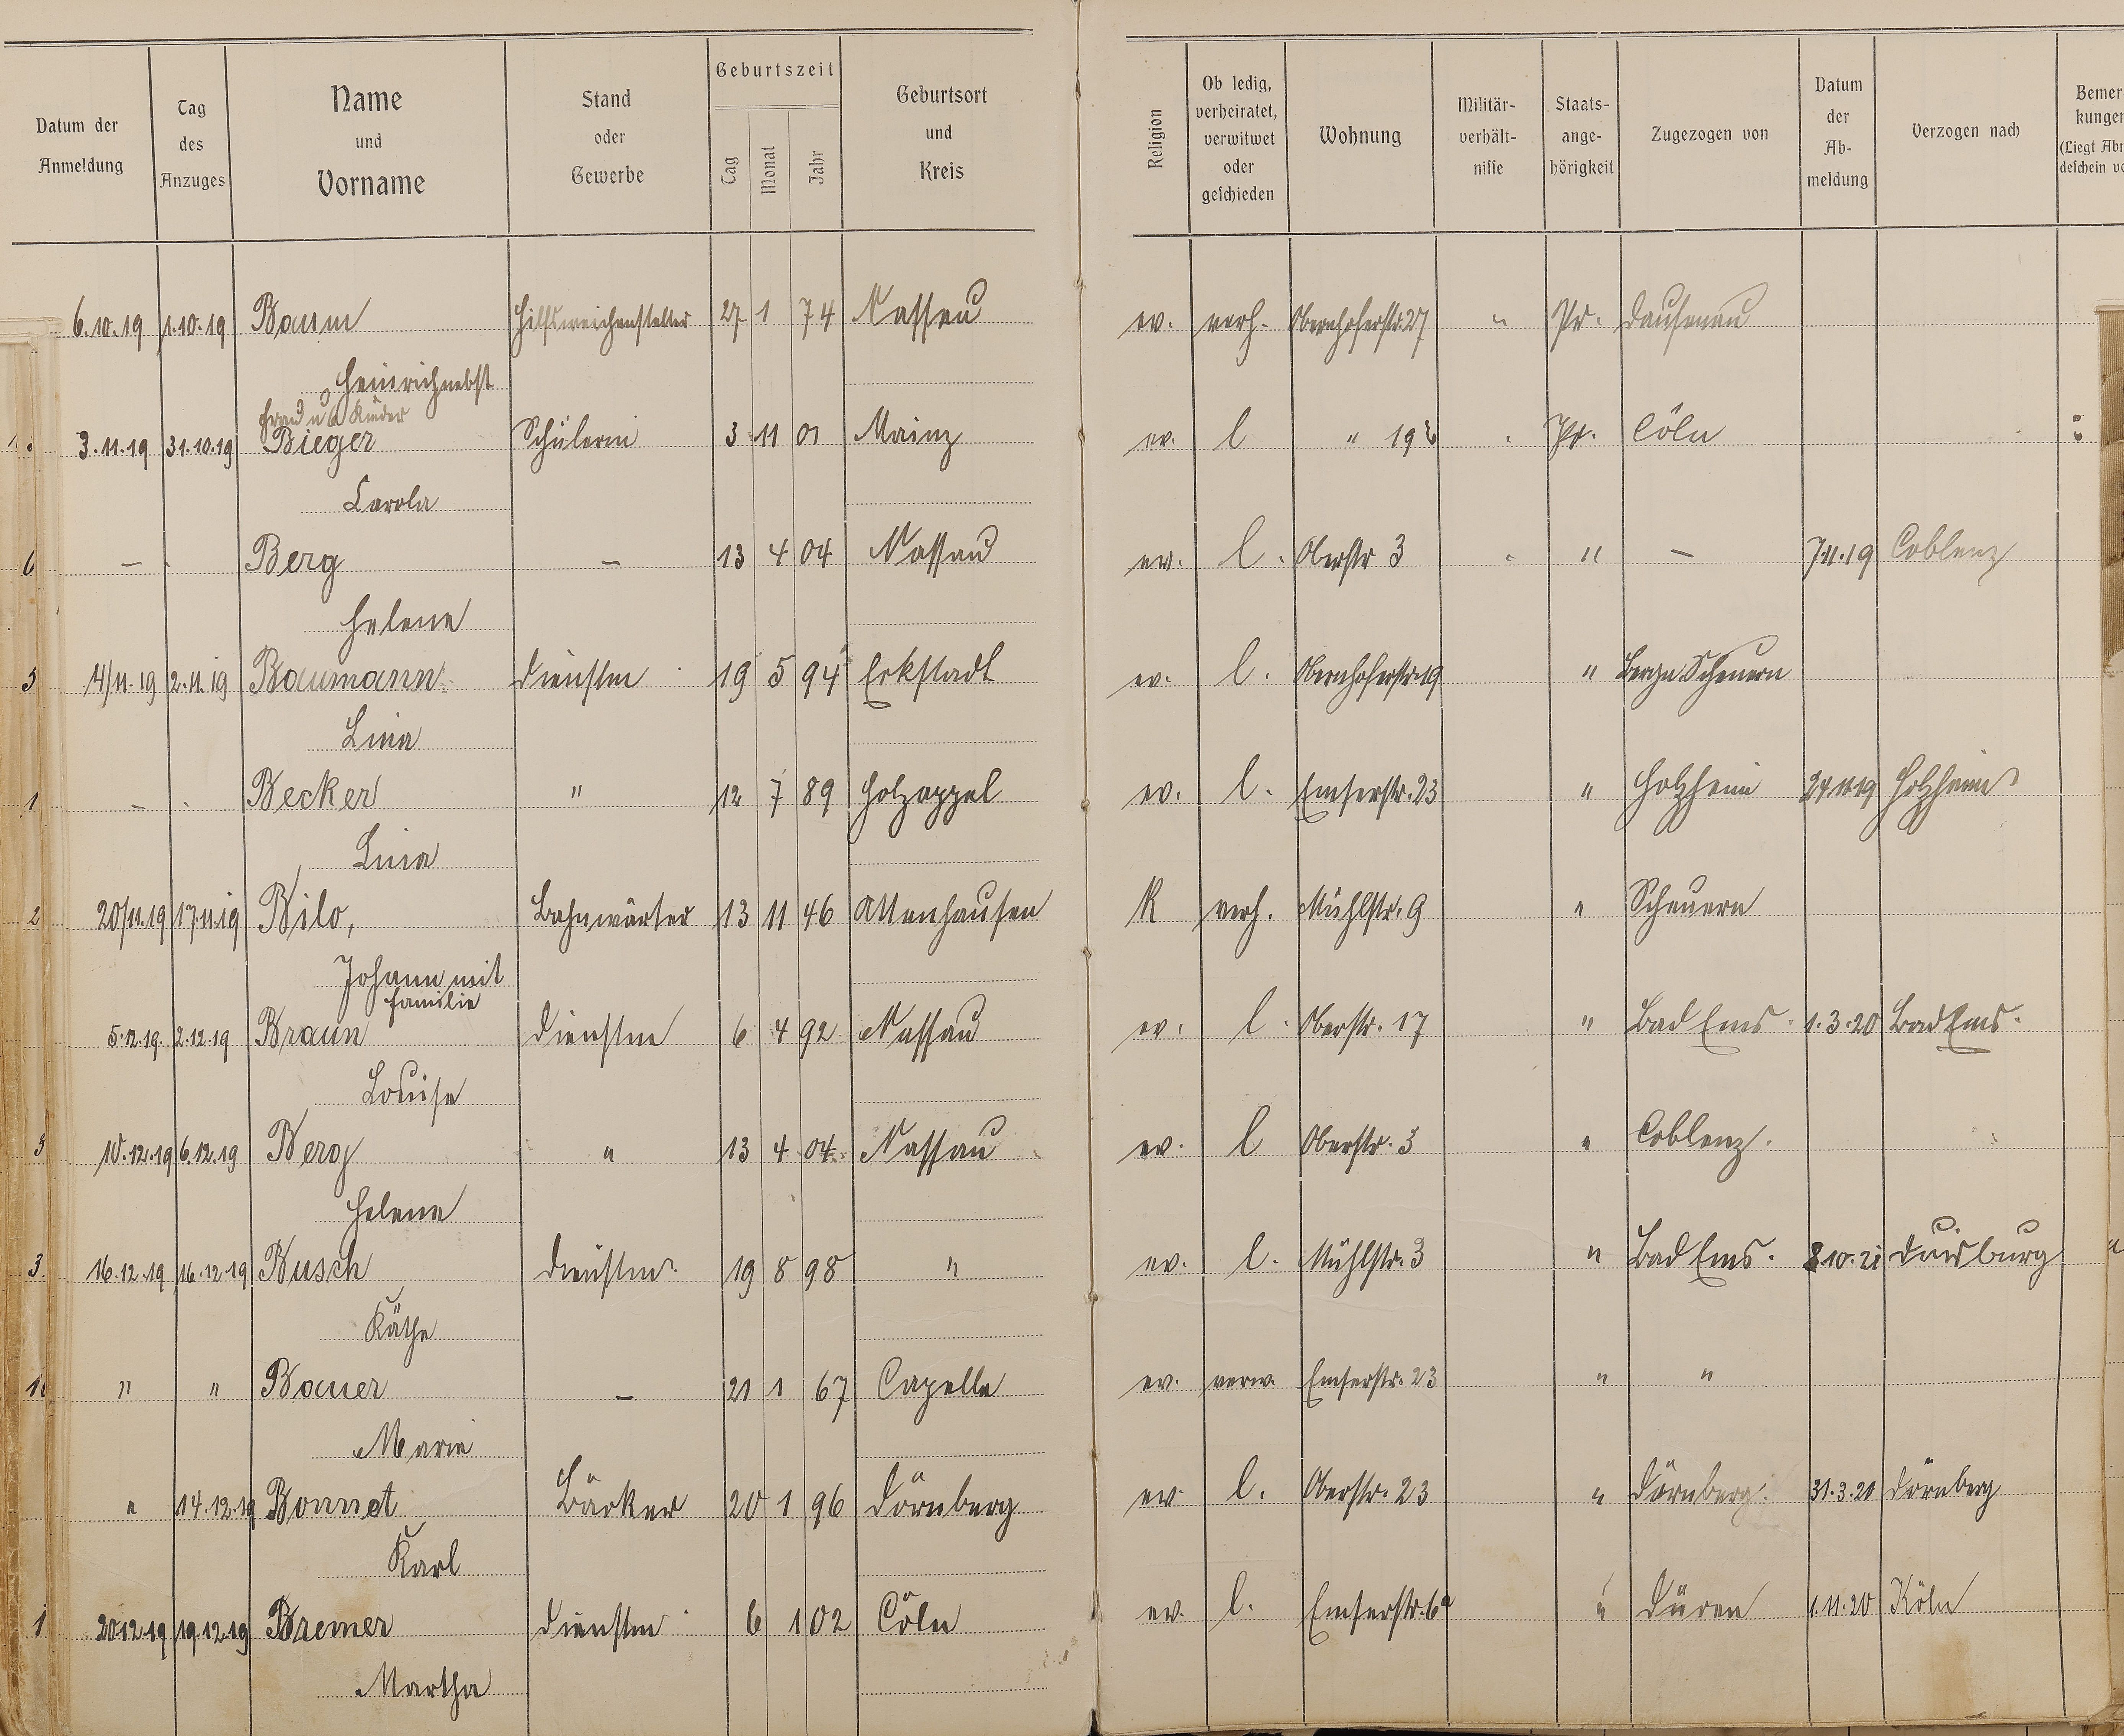 Datum der Anmeldung | Tag des Anzuges | Name und Vorname | Stand oder Gewerbe | Geburtszeit Tag Monat Jahr | Geburtsort und Kreis | Religion | Ob ledig, verheiratet, verwitwet oder geschieden | Wohnung | Militär-verhält-nisse | Staats-ange-hörigkeit | Zugezogen von | Datum der Ab-meldung | Verzogen nach | Bemer kungen (Liegt Abm deschein vo
6.10.19 1.10.19 Baum Hilfsweichensteller 27 1 74 Nassau ev. verh. Obernhoferstr. 27 " Pr. Dausenau
Heinrich nebst
Frau u 6 Kinder
3.11.19 31.10.19 Bieger Schülerin 3 11 01 Mainz ev. l " 19 Pr. Cöln
Carola
6 — Berg — 13 4 04 Nassau ev. l. Oberstr 3 " — 7.11.19 Coblenz
Helene
3 4/11.19 2.11.19 Baumann Dienstm 19 5 94 Eckstadt ev. l. Obernhoferstr. 19 " Bergn Scheuern
Lina
1 — Becker " 12 7 89 Holzappel ev. l. Emserstr. 23 " Holzheim 24.11.19 Holzheim
Lina
2 20/11.19 17.11.19 Bilo, Bahnwärter 13 11 46 Attenhausen K verh. Mühlstr. 9 " Scheuern
Johann mit
Familie
5.12.19. 2.12.19 Braun Dienstm 6 4 92 Nassau ev. l. Oberstr. 17 " Bad Ems 1.3.20 Bad Ems.
Louise
3 10.12.19 6.12.19 Berg " 13 4 04 Nassau ev. l Oberstr. 3 " Coblenz.
Helene
3 16.12.19 16.12.19 Busch Dienstm. 19 8 98 " ev. l. Mühlstr. 3 " Bad Ems. 8.10.21 Duisburg "
Käthe
" " Bauer — 21 1 67 Capelle ev. verw. Emserstr. 23 " "
Marie
" 14.12.19 Bonnet Bäcker 20 1 96 Dörnberg ev. l. Oberstr. 23 " Dörnberg. 31.3.20 Dörnberg
Karl
1 20.12.19 19.12.19 Bremer Dienstm 6 1 02 Cöln ev. l. Emserstr. 6a " Düren 1.11.20 Köln
Martha